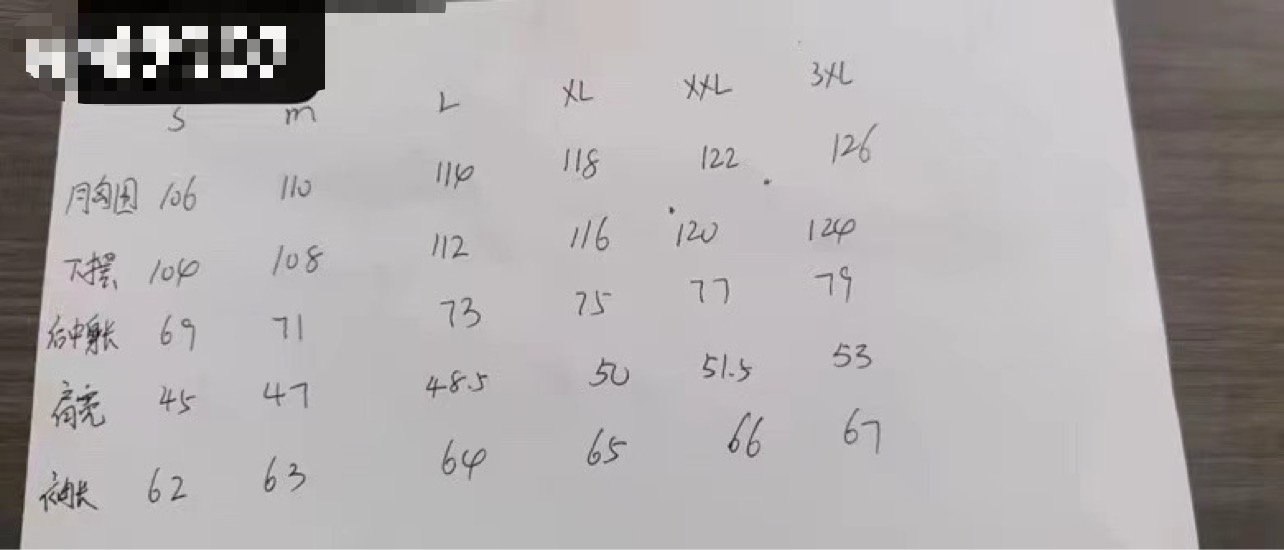 S m L XL XXL 3XL
胸围 106 110 114 118 122 126
下摆 104 108 112 116 120 124
后中身长 69 71 73 75 77 79
肩宽 45 47 48.5 50 51.5 53
袖长 62 63 64 65 66 67